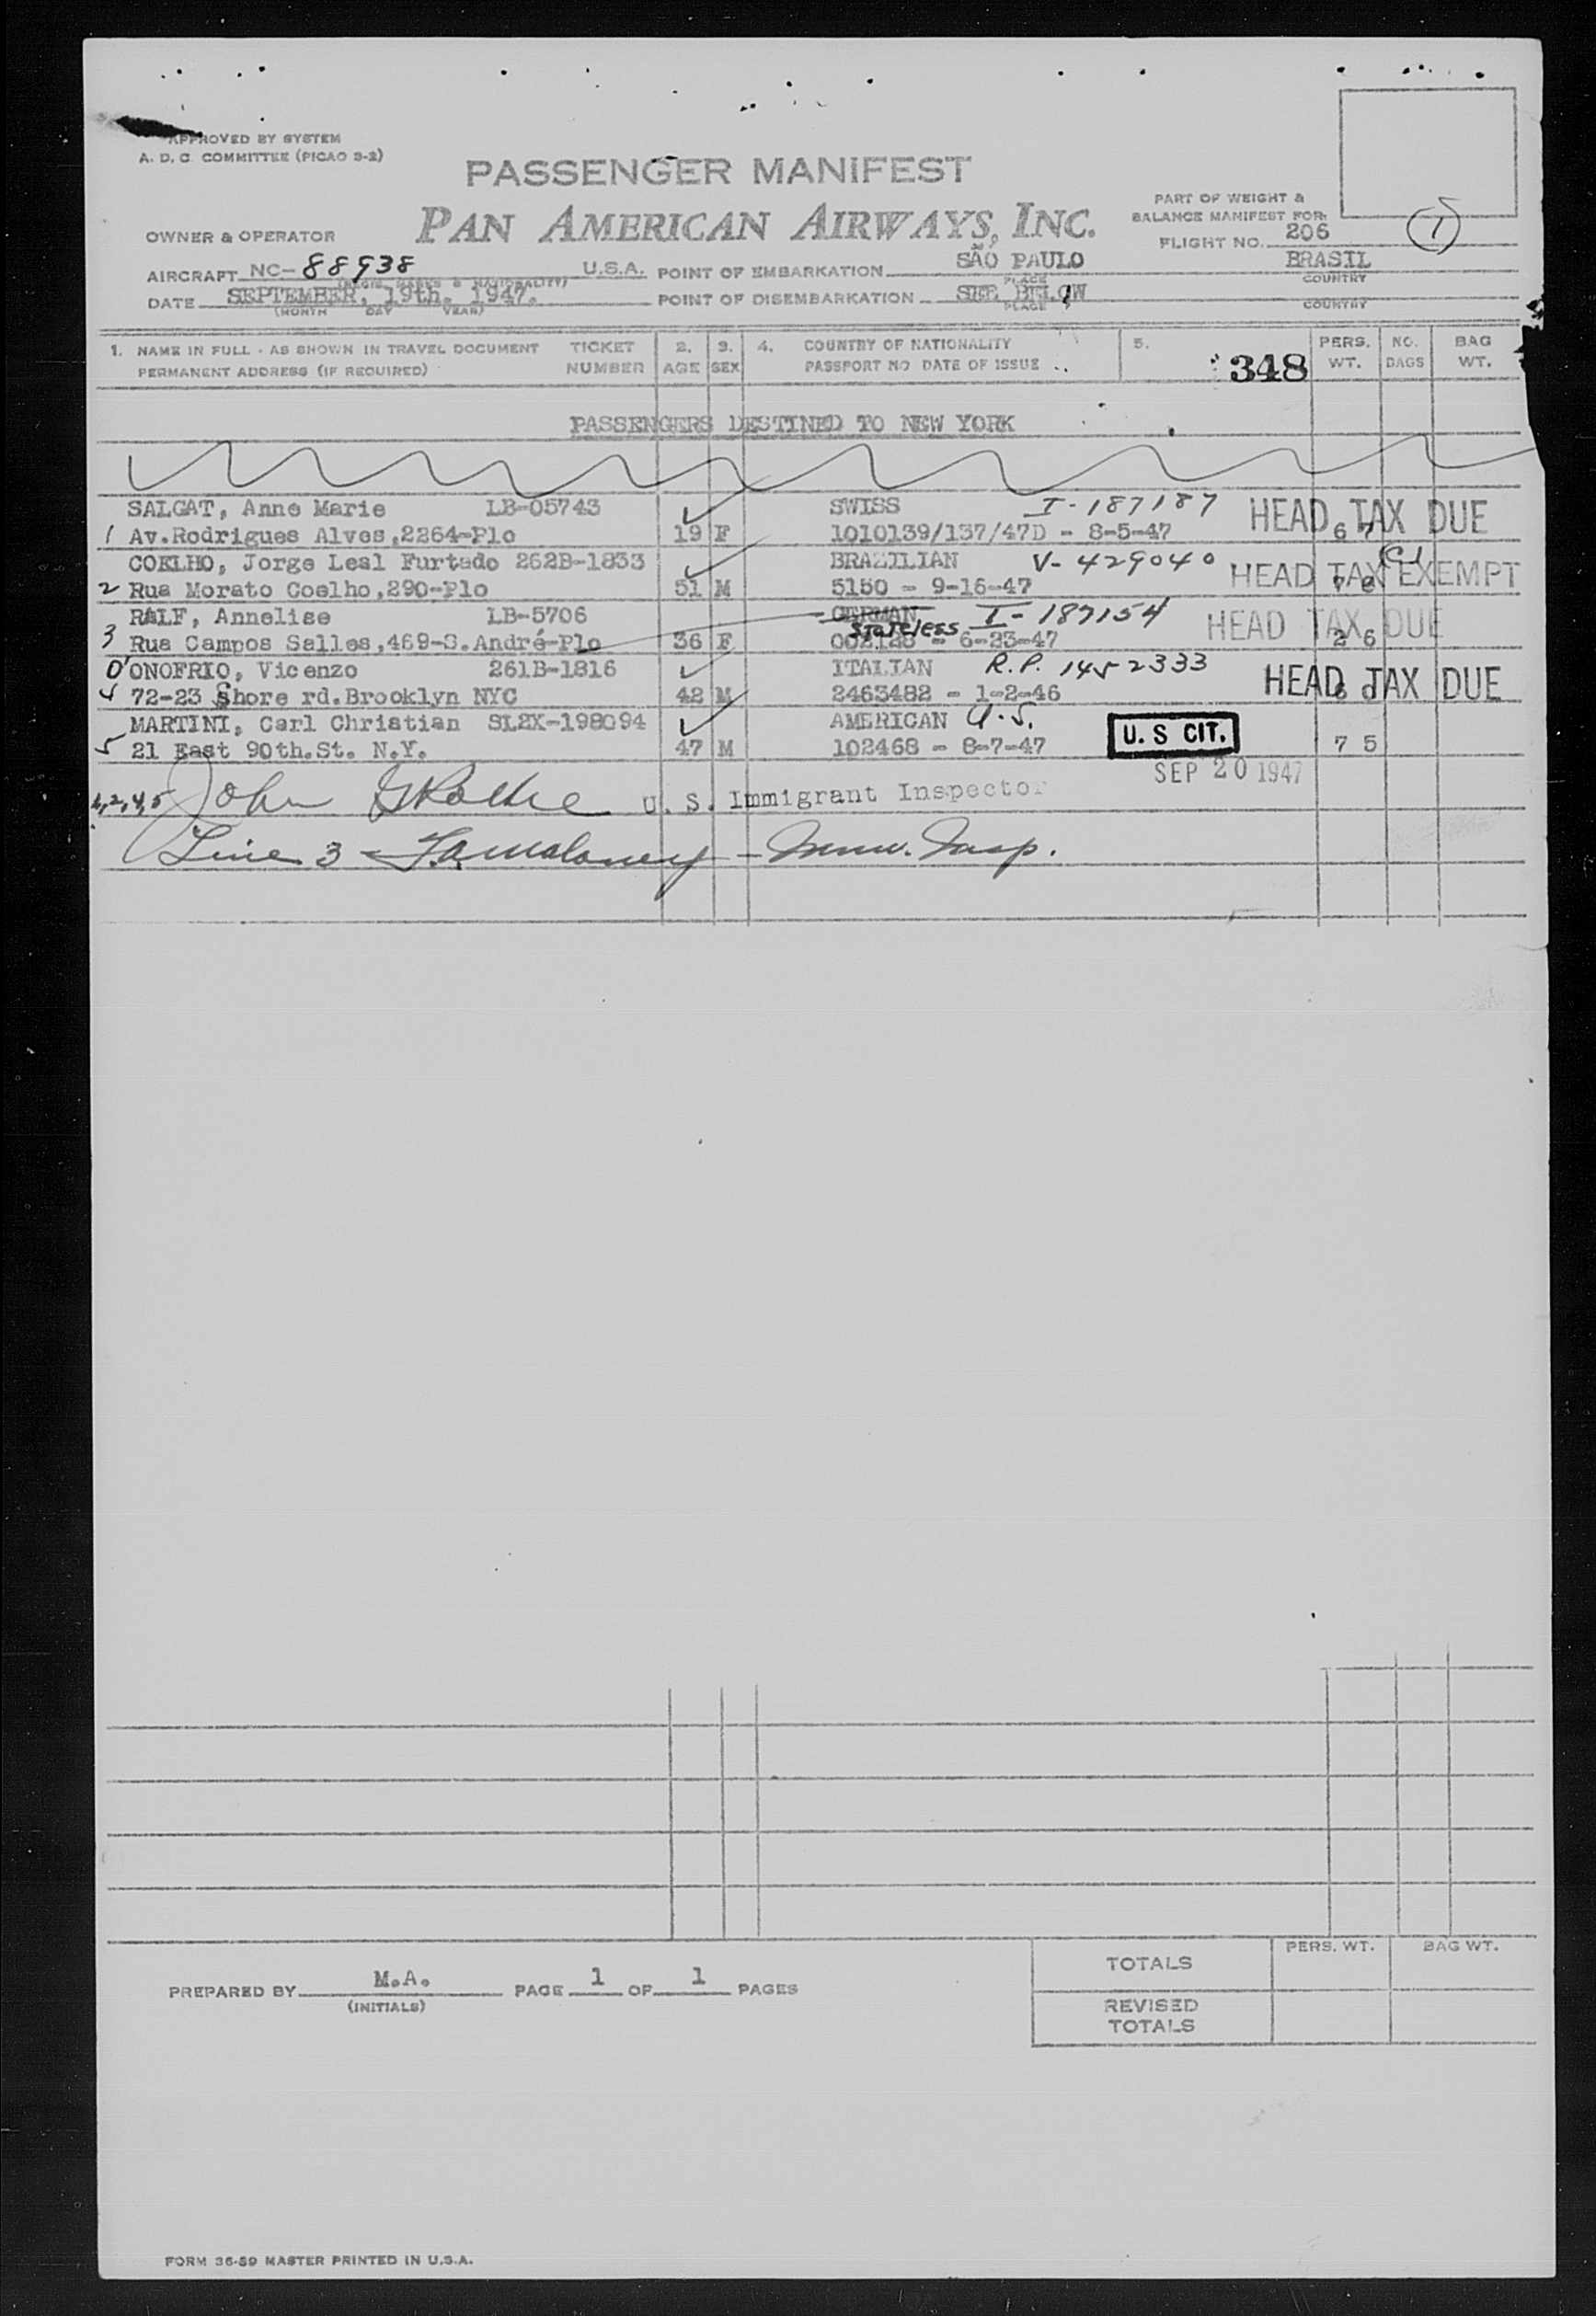 APPROVED BY SYSTEM
A. D. C. COMMITTEE (PICAO 3-2)
PASSENGER MANIFEST
PAN AMERICAN AIRWAYS, INC.
PART OF WEIGHT &
BALANCE MANIFEST FOR:
FLIGHT NO. 206
1
OWNER & OPERATOR
AIRCRAFT NC-88938 U.S.A. POINT OF EMBARKATION SÃO PAULO BRASIL
(REGIS. MARKS & NATIONALITY) PLACE COUNTRY
DATE SEPTEMBER, 19th. 1947. POINT OF DISEMBARKATION SEE BELOW
(MONTH DAY YEAR) PLACE COUNTRY
1. NAME IN FULL - AS SHOWN IN TRAVEL DOCUMENT TICKET 2. 3. 4. COUNTRY OF NATIONALITY 5. PERS. NO. BAG
PERMANENT ADDRESS (IF REQUIRED) NUMBER AGE SEX PASSPORT NO DATE OF ISSUE 348 WT. BAGS WT.
PASSENGERS DESTINED TO NEW YORK
SALGAT, Anne Marie LB-05743 SWISS I-187187 HEAD TAX DUE
1 Av.Rodrigues Alves,2264-Plo 19 F 1010139/137/47D - 8-5-47 6
COELHO, Jorge Leal Furtado 262B-1833 BRAZILIAN V-429040 HEAD TAX EXEMPT
2 Rua Morato Coelho,290-Plo 51 M 5150 - 9-16-47 7
RALF, Annelise LB-5706 GERMAN Stateless I-187154 HEAD TAX DUE
3 Rua Campos Salles,469-S.André-Plo 36 F 002128 - 6-23-47 2 6
D'ONOFRIO, Vicenzo 261B-1816 ITALIAN R.P. 1452333 HEAD TAX DUE
4 72-23 Shore rd.Brooklyn NYC 42 M 2463482 - 1-2-46 6
MARTINI, Carl Christian SL2X-198094 AMERICAN U.S. U.S CIT.
5 21 East 90th.St. N.Y. 47 M 102468 - 8-7-47 7 5
SEP 20 1947
1,2,4,5 John U. S. Immigrant Inspector
Line 3 - F.A. Maloney - Imm. Insp.
PREPARED BY M.A. PAGE 1 OF 1 PAGES
(INITIALS)
PERS. WT. BAG WT.
TOTALS
REVISED
TOTALS
FORM 36-59 MASTER PRINTED IN U.S.A.